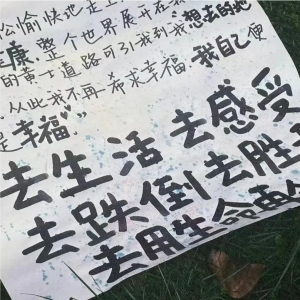 松愉快地走上
健康,整个世界展开在我
的黄土道路可引我到我想去的地
从此我不再希求幸福 我自己便
是幸福
去生活 去感受
去跌倒 去胜
去用生命再